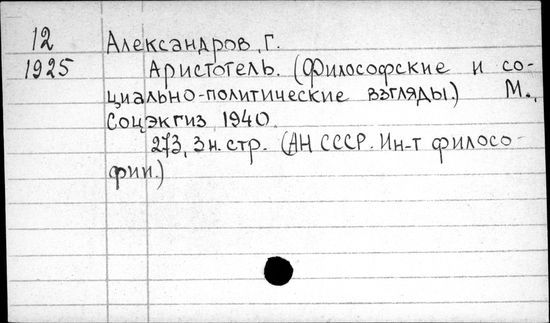 12 Александров, Г.
1925 Аристотель. (Философские и со-
циально-политические взгляды.) М.,
Соцэкгиз, 1940.
273, 3 н. стр. (АН СССР. Ин-т филосо-
фии.)